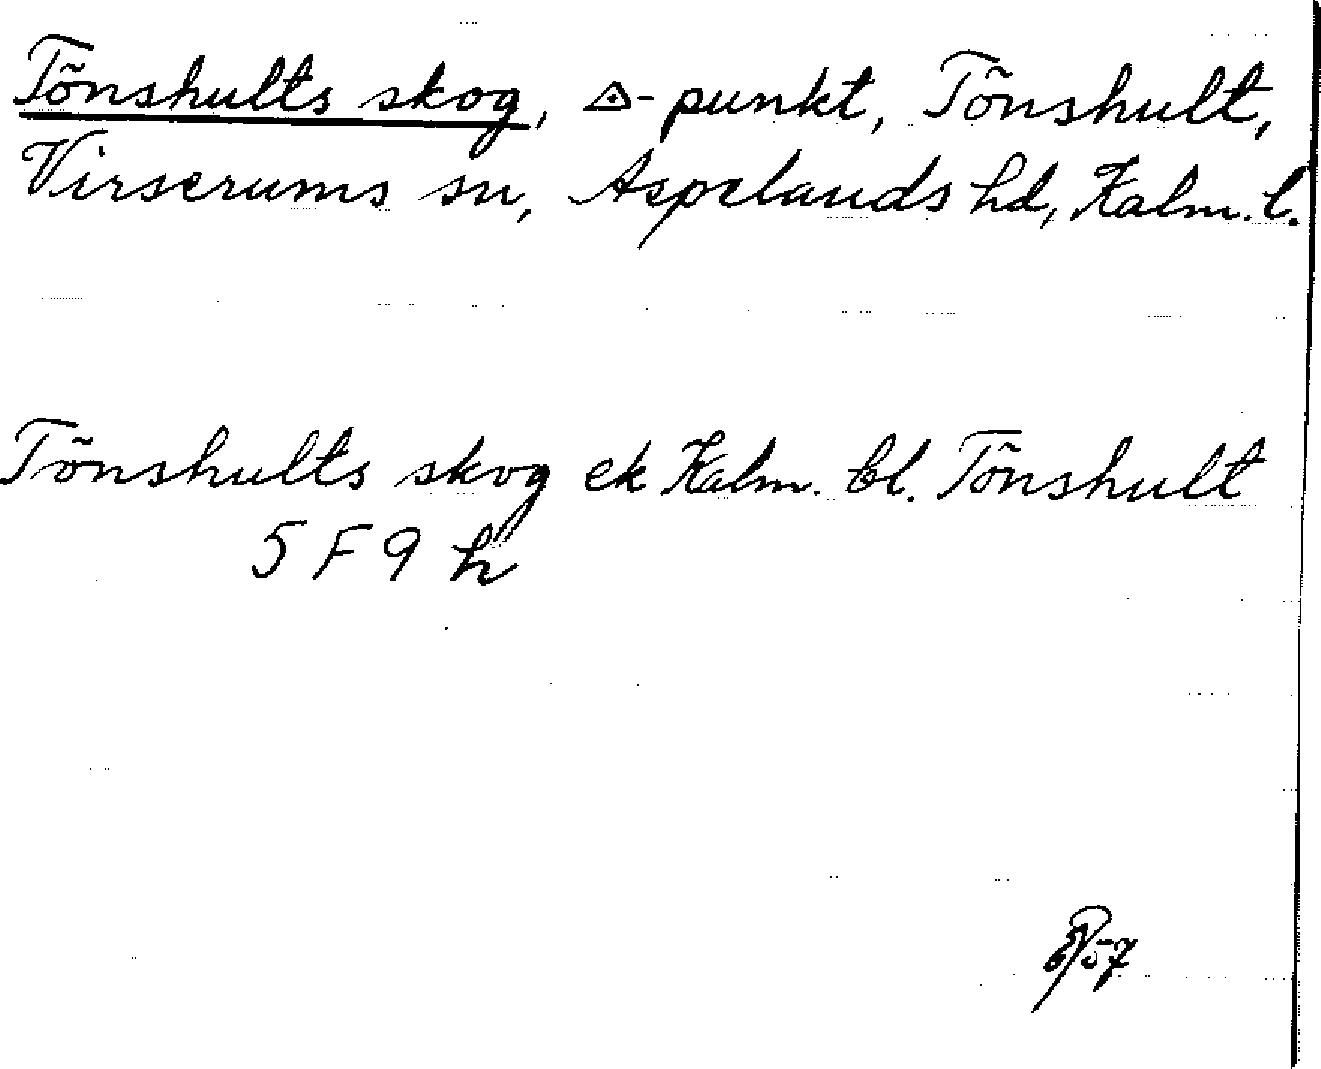 Tönshults skog, △-punkt, Tönshult,
Virserums sn, Aspelands hd, Kalm. l.
Tönshults skog ek Kalm. bl. Tönshult
5 F 9 h
57